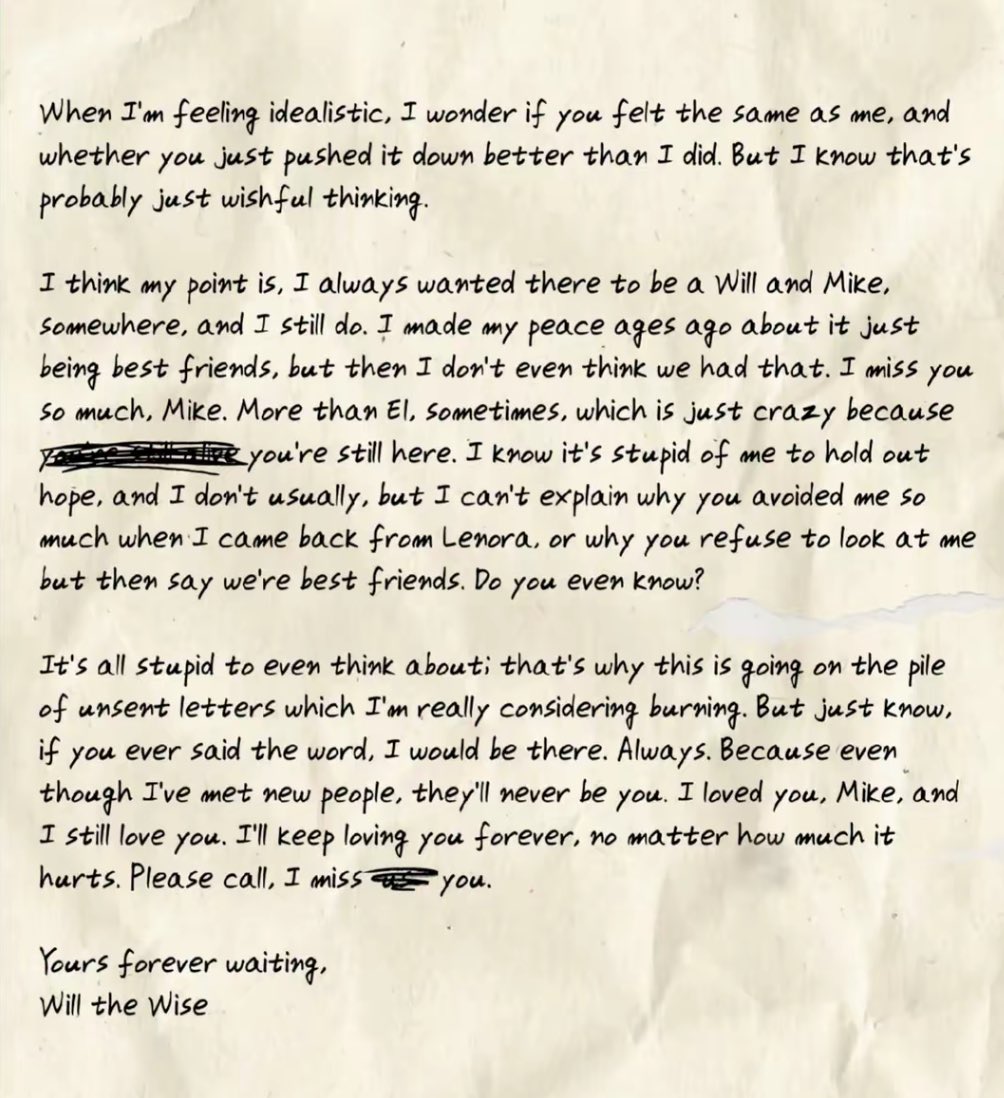 When I'm feeling idealistic, I wonder if you felt the same as me, and
whether you just pushed it down better than I did. But I know that's
probably just wishful thinking.
I think my point is, I always wanted there to be a Will and Mike,
somewhere, and I still do. I made my peace ages ago about it just
being best friends, but then I don't even think we had that. I miss you
so much, Mike. More than El, sometimes, which is just crazy because
you're still alive you're still here. I know it's stupid of me to hold out
hope, and I don't usually, but I can't explain why you avoided me so
much when I came back from Lenora, or why you refuse to look at me
but then say we're best friends. Do you even know?
It's all stupid to even think about; that's why this is going on the pile
of unsent letters which I'm really considering burning. But just know,
if you ever said the word, I would be there. Always. Because even
though I've met new people, they'll never be you. I loved you, Mike, and
I still love you. I'll keep loving you forever, no matter how much it
hurts. Please call, I miss us you.
Yours forever waiting,
Will the Wise